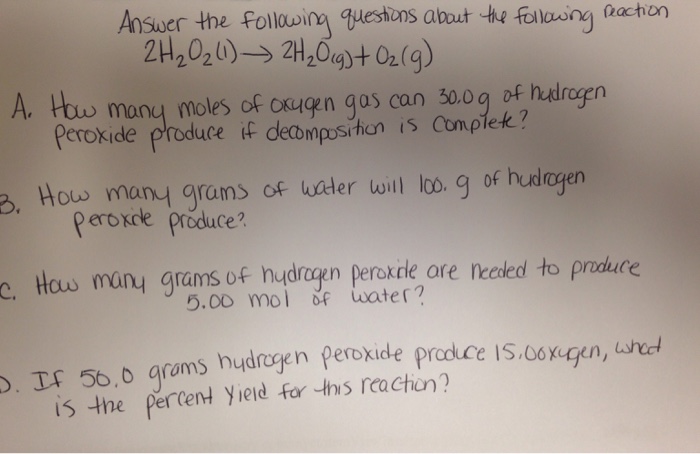 Answer the following questions about the following reaction
2H₂O₂(l) → 2H₂O(g) + O₂(g)
A. How many moles of oxygen gas can 30.0g of hudrogen
Peroxide produce if decomposition is complete?
B. How many grams of water will 100. g of hudrogen
peroxide produce?
C. How many grams of hydrogen peroxide are needed to produce
5.00 mol of water?
D. If 50.0 grams hydrogen peroxide produce 15.0oxygen, what
is the percent Yield for this reaction?